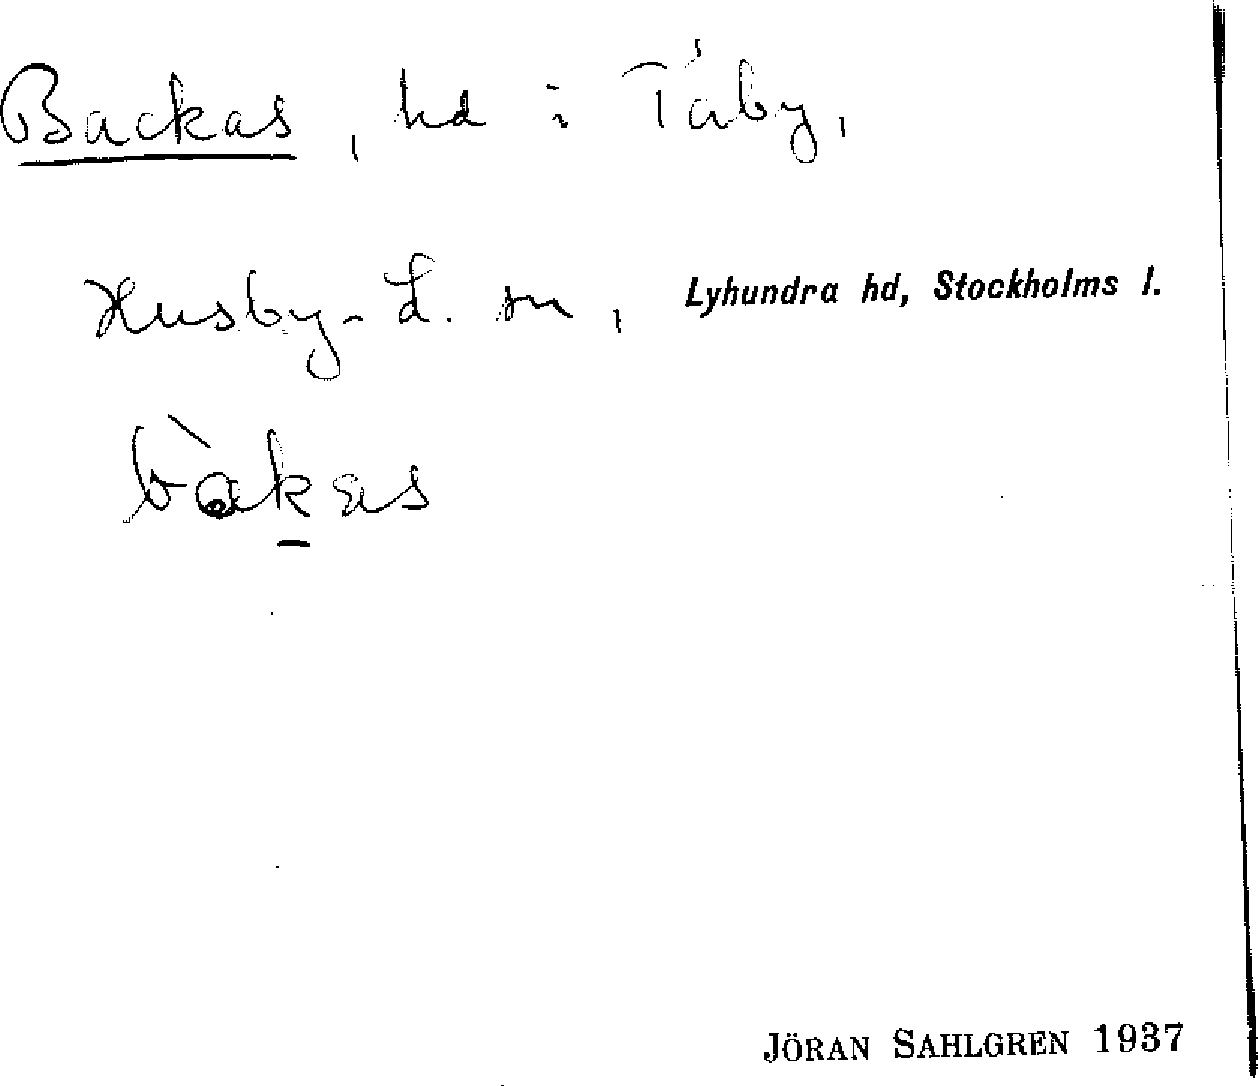 Backas, hd i Täby,
Husby-L. sn, Lyhundra hd, Stockholms l.
bàk̲as
JÖRAN SAHLGREN 1937